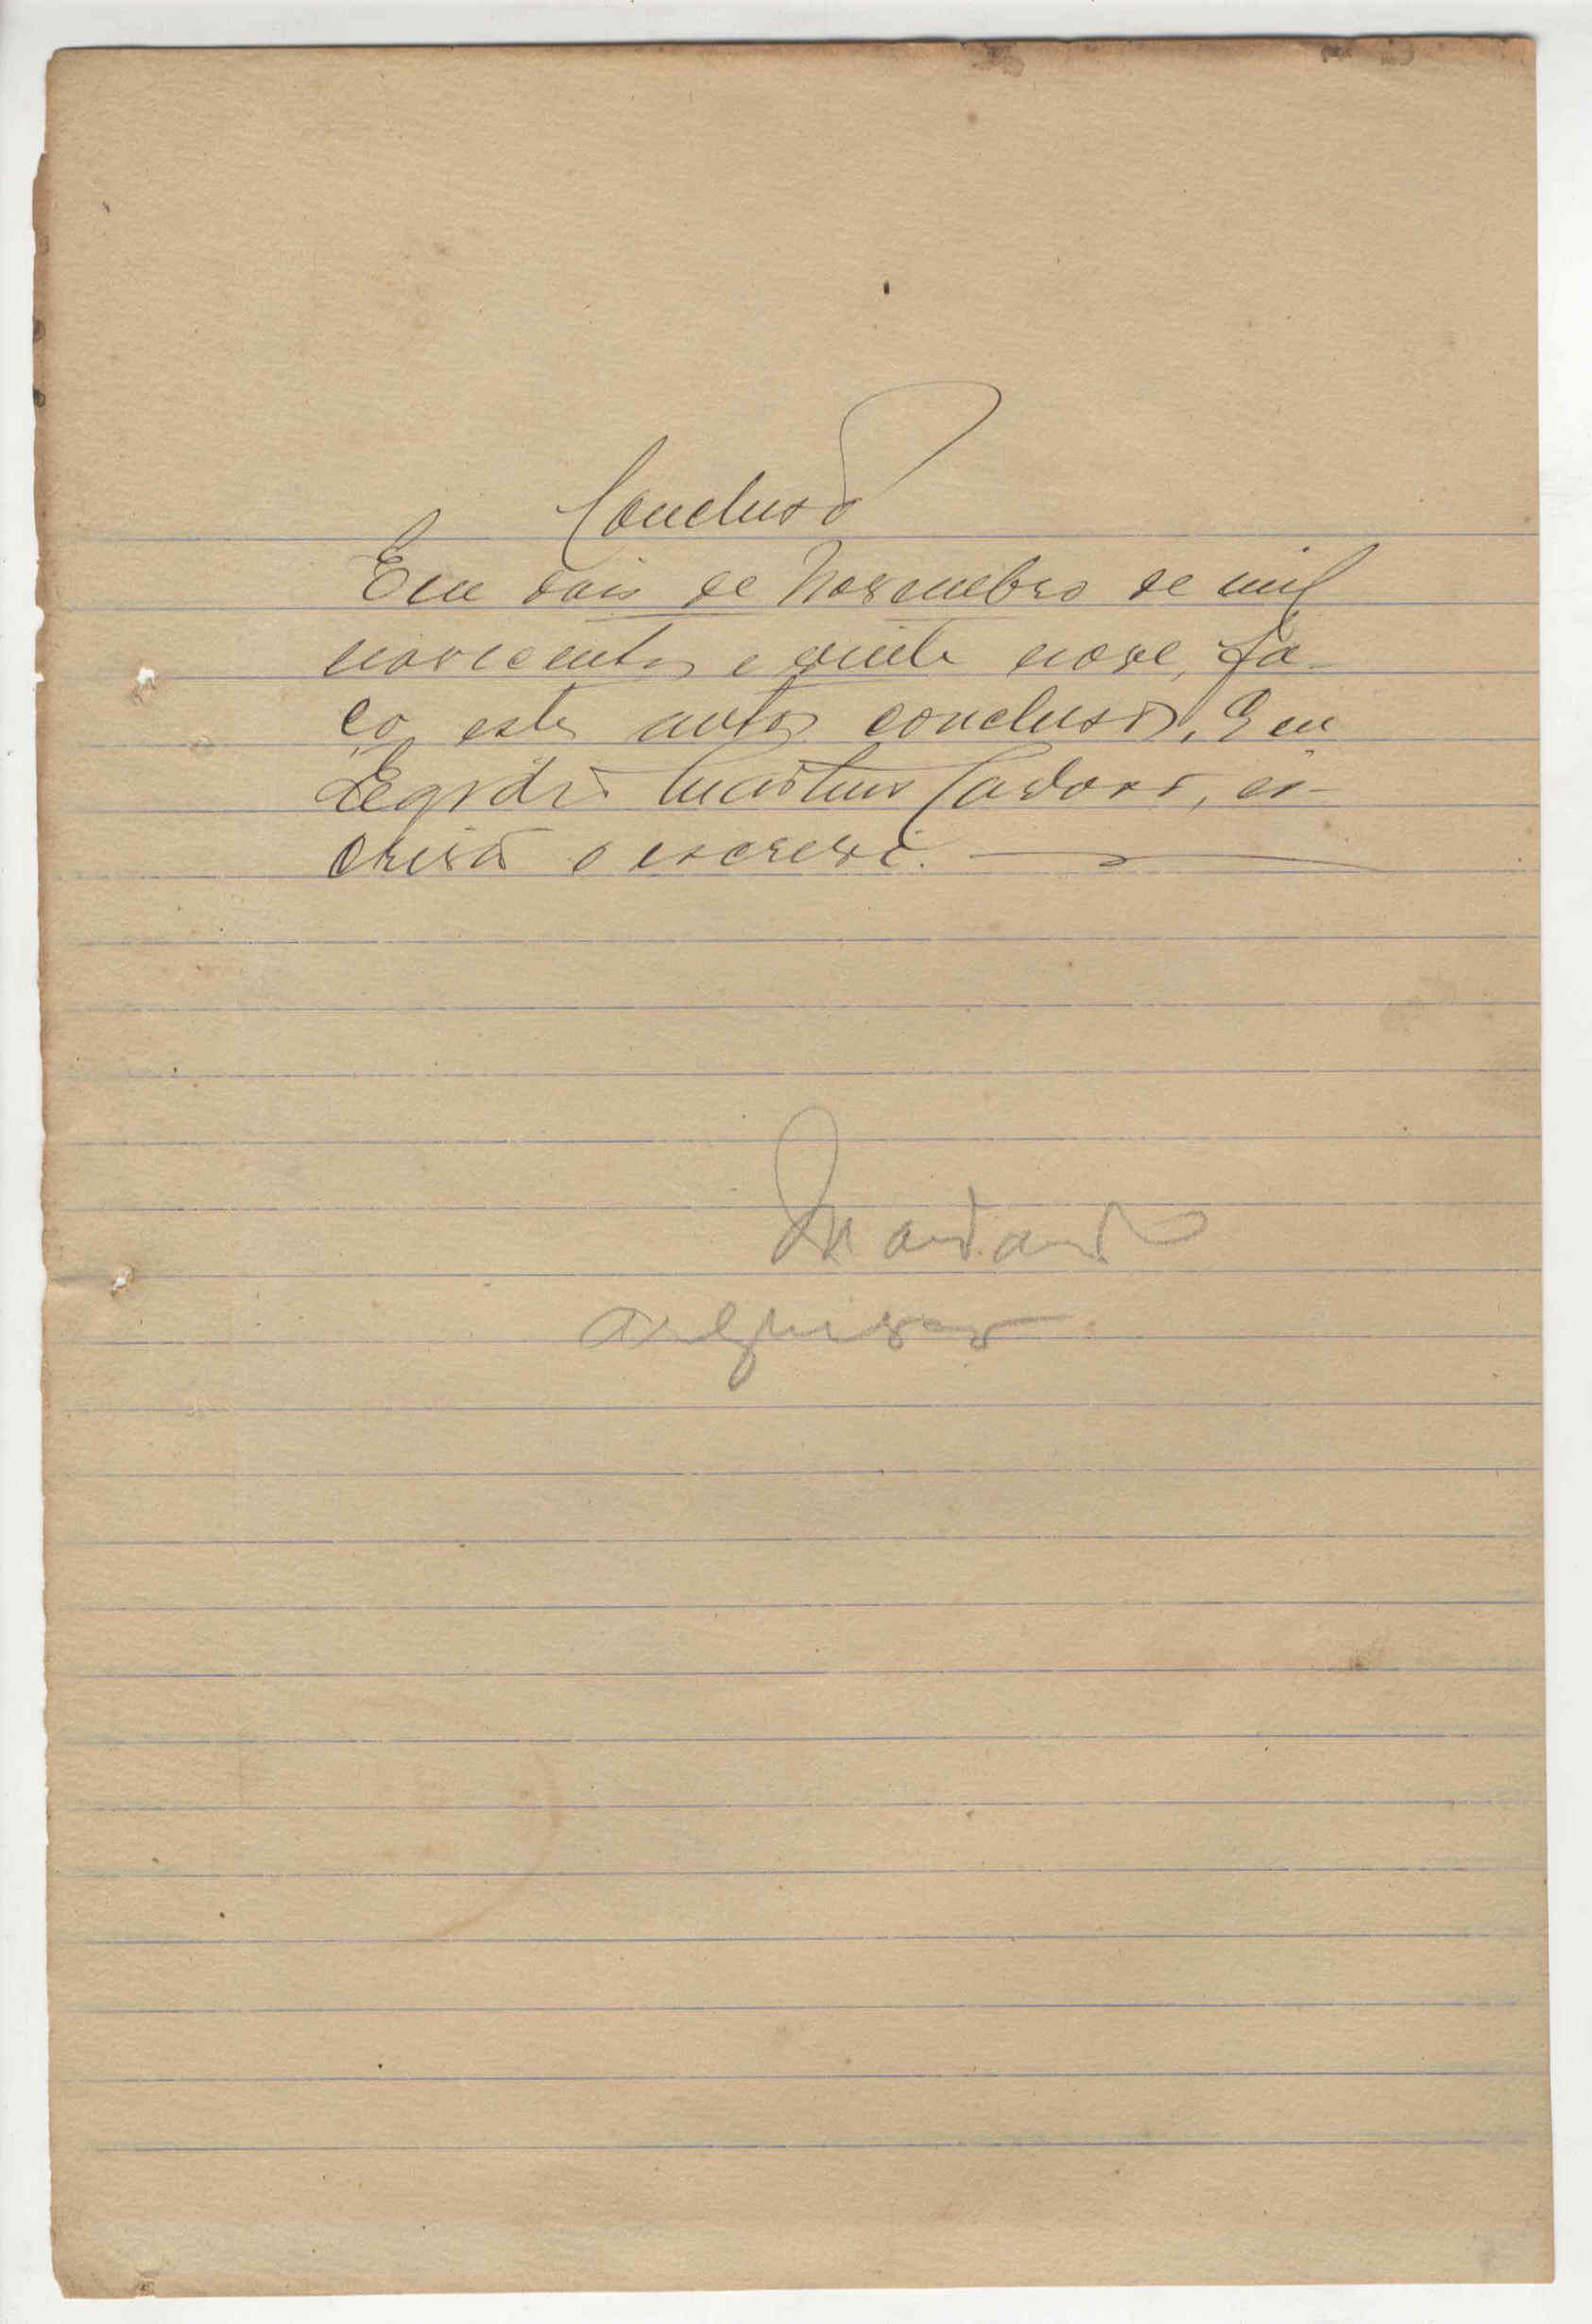 Conclusão
Em dois de Novembro de mil
novecentos e vinte nove, fa-
ço estes autos conclusos. Eu
Egydio Martins Cardoso, es-
crivão o escrevi.
Mandando
arquivar